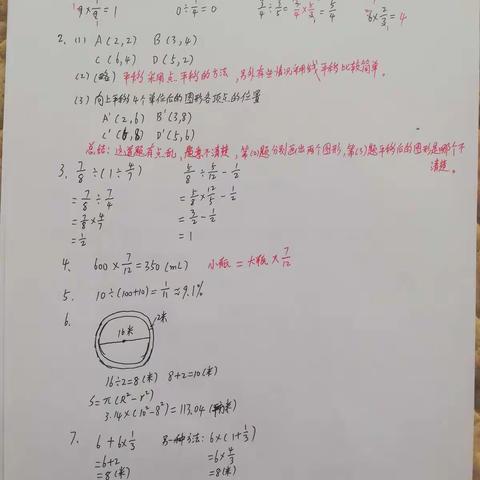 9×1/9=1 0÷1/4=0 3/4÷3/5=3/4×5/3=5/4 6×2/3=4
2. (1) A(2,2) B(3,4)
C(6,4) D(5,2)
(2) (略) 平移采用点平移的方法，另外有些情况采用线平移比较简单。
(3) 向上平移4个单位后的图形各顶点的位置
A'(2,6) B'(3,8)
C'(6,8) D'(5,6)
总结：这道题有点乱，题意不清楚，第(2)题分别画出两个图形，第(3)题平移后的图形是哪个不清楚。
3. 7/8÷(1÷4/7) 5/8÷5/12-1/2
=7/8÷7/4 =5/8×12/5-1/2
=7/8×4/7 =3/2-1/2
=1/2 =1
4. 600×7/12=350(mL) 小瓶=大瓶×7/12
5. 10÷(100+10)=1/11≈9.1%
6.
16米 2米
16÷2=8(米) 8+2=10(米)
S=π(R²-r²)
3.14×(10²-8²)=113.04(平方米)
7. 6+6×1/3 另一种方法：6×(1+1/3)
=6+2 =6×4/3
=8(米) =8(米)